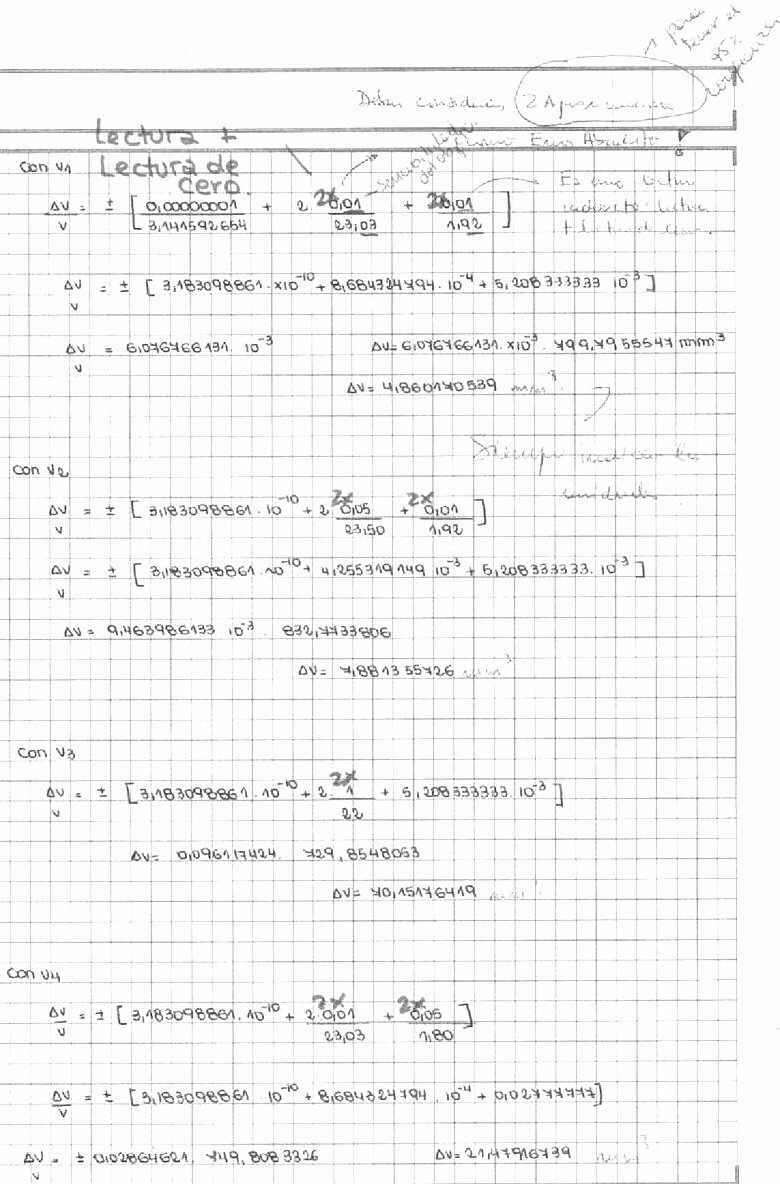 para
tener el
95%
Deben considerar 2 Aproximación
Lectura +
Lectura de
cero.
Error Absoluto
Con V1
ΔV/V = ± [ 0,00000001/3,141592654 + 2 2x0,01/23,03 + 2x0,01/1,92 ]
Es una
lectura
indirecta
ΔV/V = ± [ 3,183098861 . x10⁻¹⁰ + 8,684324794. 10⁻⁴ + 5,208333333 10⁻³ ]
ΔV/V = 6,076766131. 10⁻³ ΔV= 6,076766131. x10⁻³ . 799,7955547 mm³
ΔV= 4,860170539 mm³.
Siempre indicar las
unidades
Con V2
ΔV/V = ± [ 3,183098861 . 10⁻¹⁰ + 2. 2x0,05/23,50 + 2x0,01/1,92 ]
ΔV/V = ± [ 3,183098861 . 10⁻¹⁰ + 4,255319149 10⁻³ + 5,208333333. 10⁻³ ]
ΔV = 9,463986133 10⁻³ . 832,7733806
ΔV= 7,881355726 mm³
Con V3
ΔV/V = ± [ 3,183098861 . 10⁻¹⁰ + 2. 2x1/22 + 5,208333333. 10⁻³ ]
ΔV= 0,096117424. 729,8548053
ΔV= 70,15176419 mm³
Con V4
ΔV/V = ± [ 3,183098861. 10⁻¹⁰ + 2 2x0,01/23,03 + 2x0,05/1,80 ]
ΔV/V = ± [ 3,183098861 10⁻¹⁰ + 8,684324794 . 10⁻⁴ + 0,02777777 ]
ΔV/V = ± 0,02864621. 749,8083326 ΔV= 21,47916739 mm³